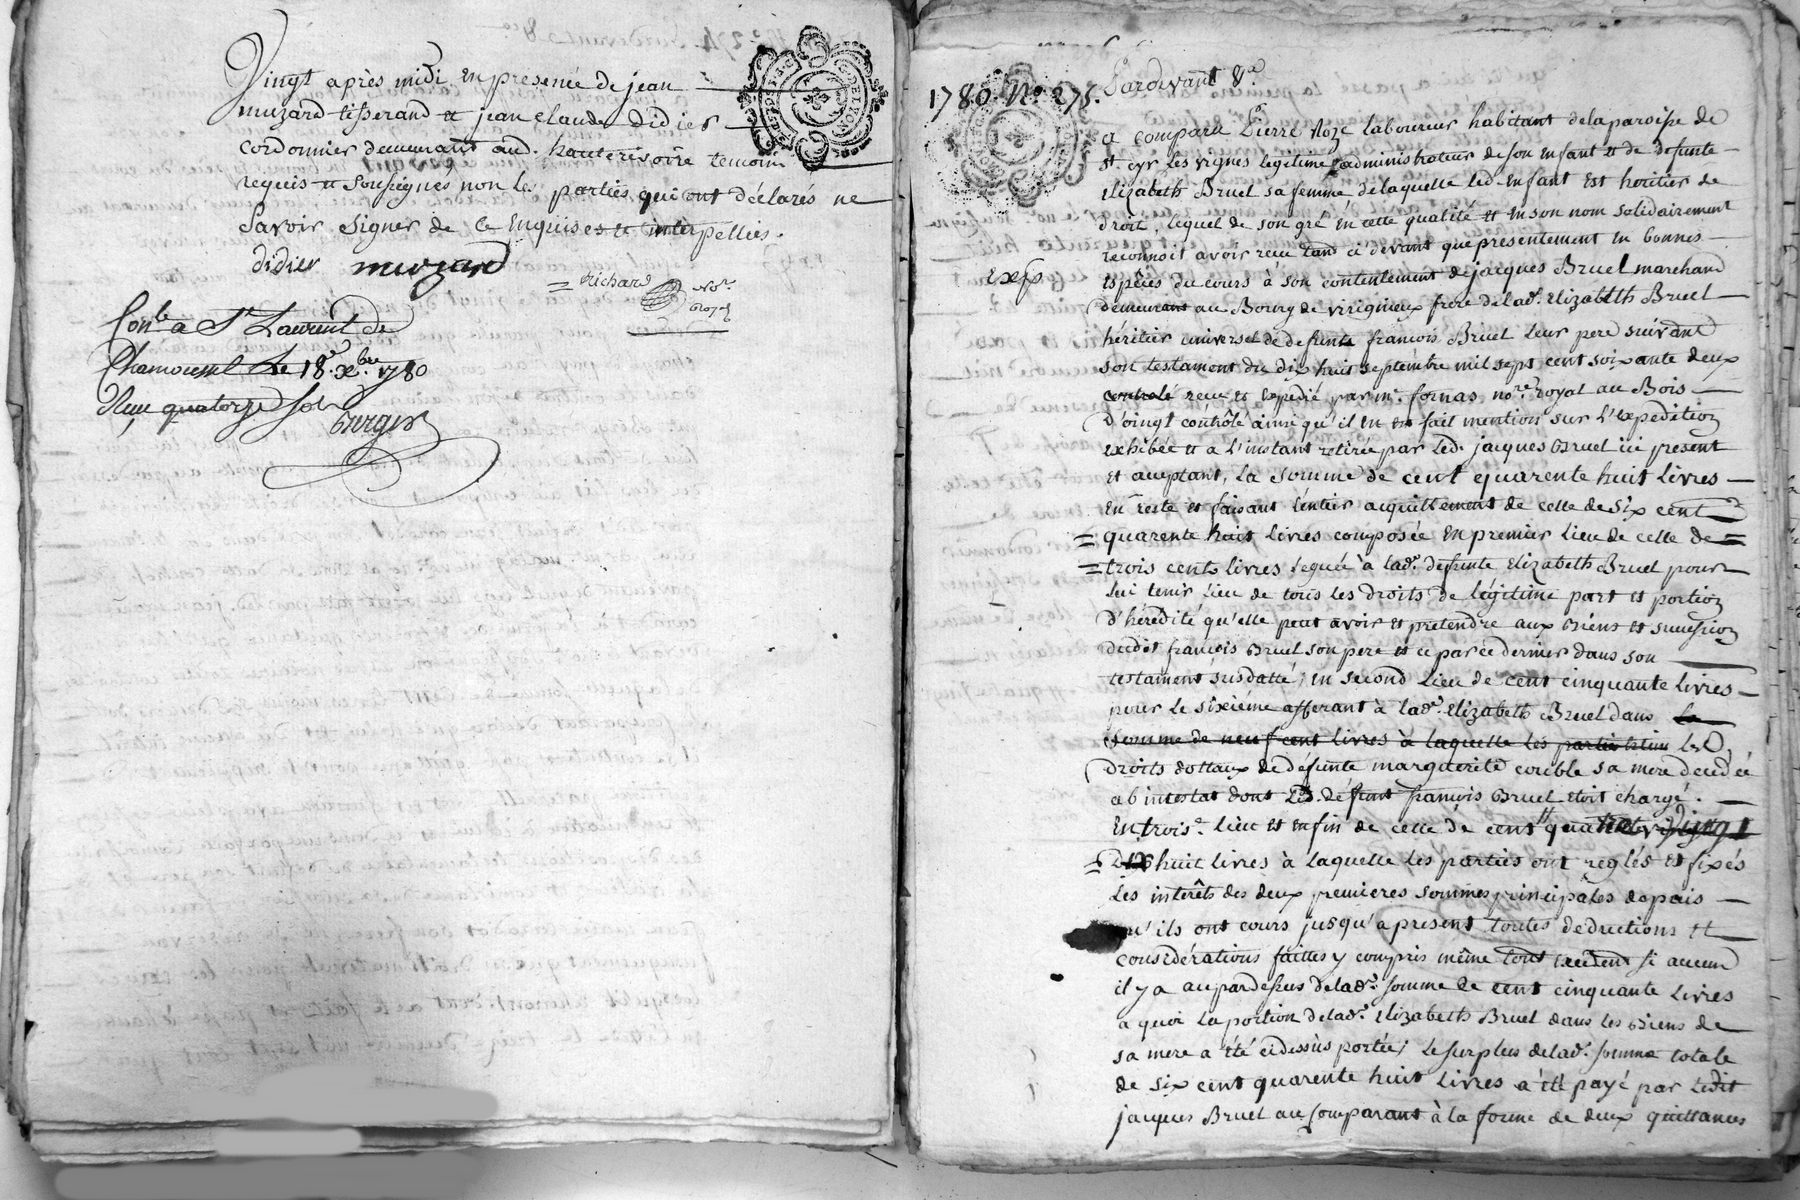 Vingt après midi en presence de jean
muzard tisserand et jean claude didier
cordonnier demeurant aud. hauterivoire temoins
requis et soussignés non les parties qui ont déclarés ne
savoir signer de ce enquises et interpellées.
didier muzard
Richard No.re
royal
Con.lé a St Laurent de
Chamousset Le 18.e x.bre 1780
Reçu quatorze sols
1780. No. 275. Pardevant &.a
a comparu Pierre Roze laboureur habitant de la paroisse de
St. cyr les vignes legitime administrateur de son enfant et de defunte
Elizabeth Bruel sa femme de laquelle led. enfant est heritier de
droit, lequel de son gré en cette qualité et en son nom solidairement
reconnoit avoir reçu tant ci devant que presentement en bonnes
Exp.
espèces du cours à son contentement de jacques Bruel marchand
demeurant au Bourg de virigneux frere de lad. Elizabeth Bruel
héritier universel de defunt françois Bruel leur pere suivant
son testament du dix huit septembre mil sept cent soixante deux
controlé reçu et expedié par m.e fornas no.re royal au Bois
d'oingt contrôlé ainsi qu'il en est fait mention sur L'expedition
exhibée et a L'instant retirée par Led. jacques Bruel ici present
et acceptant, La somme de cent quarente huit Livres
en reste et faisant l'entier acquittement de celle de six cent
quarente huit livres composée en premier lieu de celle de
trois cents livres leguée à lad.e defunte Elizabeth Bruel pour
lui tenir lieu de tous les droits de légitime part et portion
d'hérédité qu'elle peut avoir et pretendre aux Biens et succession
dudit françois Bruel son pere et ce par ce dernier dans son
testament susdatté; en second Lieu de cent cinquante livres
pour Le sixième afferant à lad.e Elizabeth Bruel dans le
somme de neuf cent livres à laquelle les parties Les
droits dottaux de defunte marguerite sa mere decedée
ab intestat dont Led. défunt françois Bruel etoit chargé.
En trois.e Lieu et enfin de celle de cent quatre vingt
Dix huit livres à laquelle les parties ont reglés et fixés
Les interêts des deux premieres sommes principales depuis
qu'ils ont cours jusqu'a present toutes deductions et
considérations faittes y compris même tout excédent si aucun
il y a au pardessus de lad.e somme de cent cinquante Livres
a quoi La portion de lad.e Elizabeth Bruel dans les Biens de
sa mere a été cidessus portée; Le surplus de lad.e somme totale
de six cent quarente huit Livres a été payé par Ledit
jacques Bruel au Comparant à la forme de deux quittances